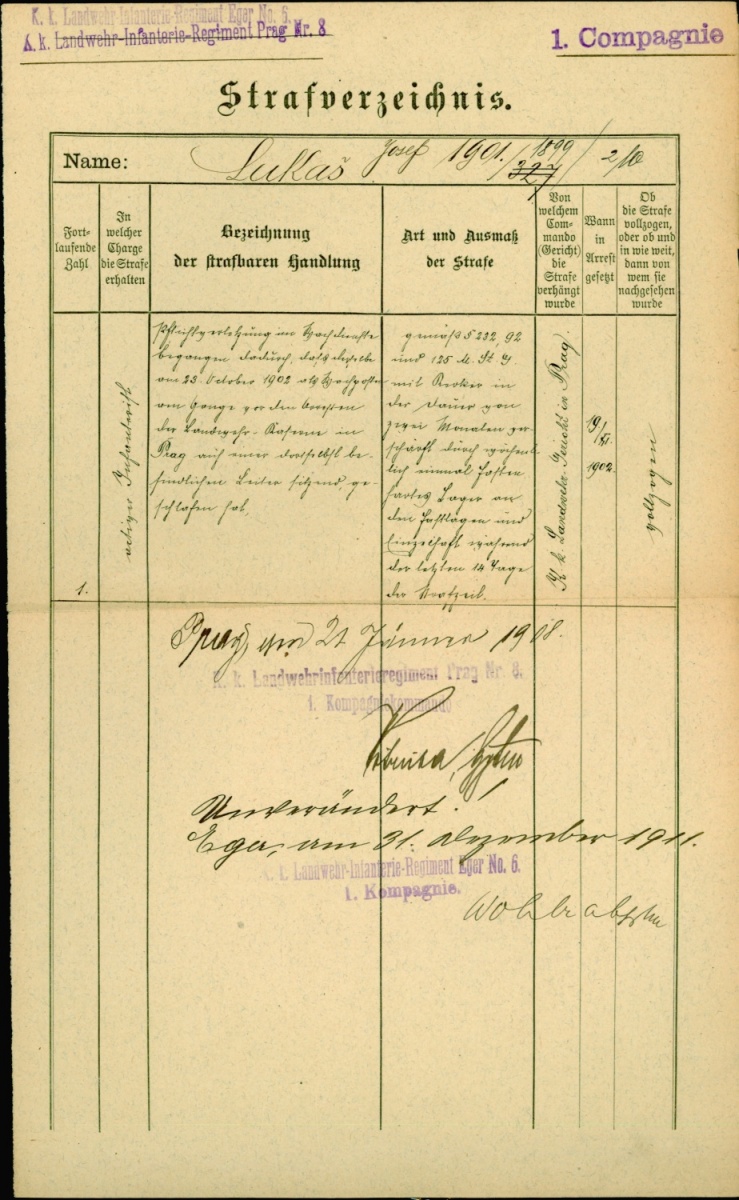 K. k. Landwehr-Infanterie-Regiment Eger No. 6.
K. k. Landwehr-Infanterie-Regiment Prag Nr. 8
1. Compagnie
Strafverzeichnis.
Name: Lukaš Josef 1901./1899 327/ 2/10
Fort-
laufende
Zahl
In
welcher
Charge
die Strafe
erhalten
Bezeichnung
der strafbaren Handlung
Art und Ausmaß
der Strafe
Von
welchem
Com-
mando
(Gericht)
die
Strafe
verhängt
wurde
Wann
in
Arrest
gesetzt
Ob
die Strafe
vollzogen,
oder ob und
in wie weit,
dann von
wem sie
nachgesehen
wurde
1.
activer Infanterist
Pflichtverletzung im Wachdienste
begangen dadurch, daß derselbe
am 23. October 1902 als Wachposten
am Gange vor den Arresten
der Landwehr-Kaserne in
Prag auf einer dortselbst be-
findlichen Leiter sitzend, ge-
schlafen hat.
gemäß § 232, 92
und 125 M. St. G.
mit Kerker in
der Dauer von
zwei Monaten ver-
schärft durch wöchent-
lich einmal Fasten
hartes Lager an
den Fasttagen und
Einzelhaft während
der letzten 14 Tage
der Strafzeit.
K. k. Landwehr-Gericht in Prag.
19/XI.
1902
vollzogen
Prag, am 21 Jänner 1908.
K. k. Landwehrinfanterieregiment Prag Nr. 8.
1. Kompagniekommando
Unverändert!
Eger, am 31. Dezember 1911.
K. k. Landwehr-Infanterie-Regiment Eger No. 6.
1. Kompagnie.